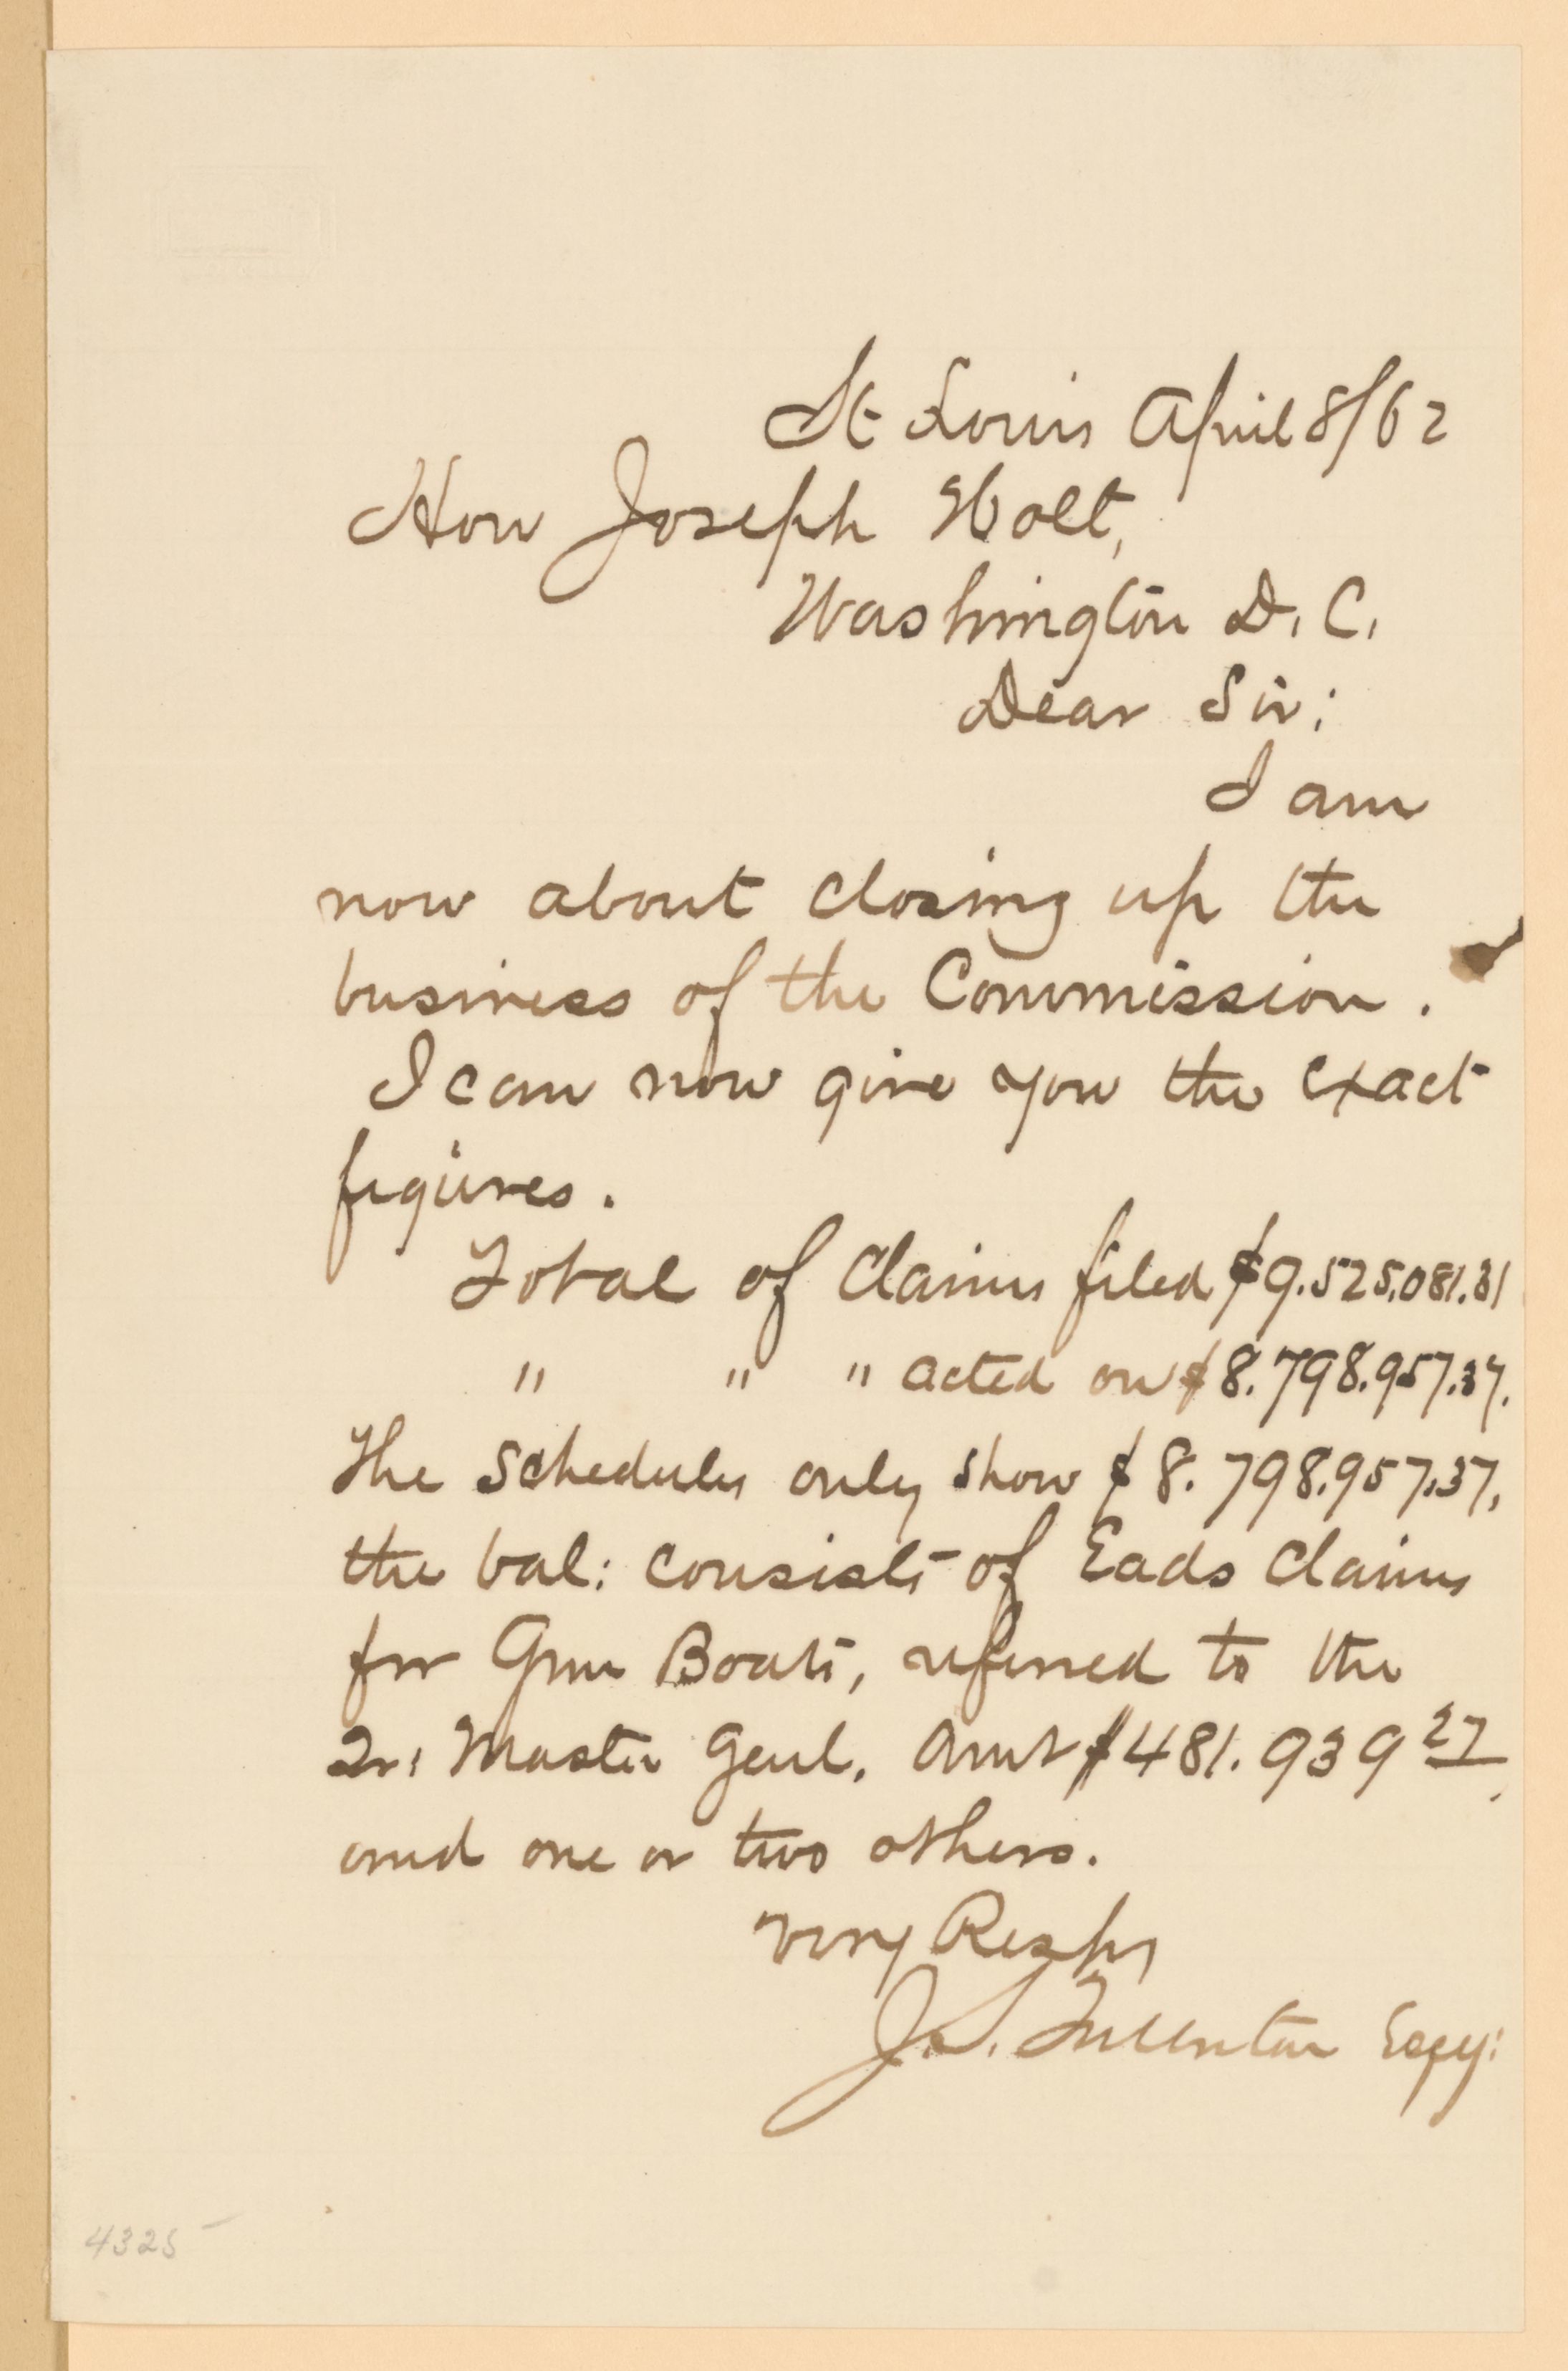 St Louis April 8/62
Hon Joseph Holt,
Washington D. C.
Dear Sir:
I am
now about closing up the
business of the Commission.
I can now give you the exact
figures.
Total of Claims filed $9.525.081.31
" " " acted on $8.798.957.37.
The Schedules only show $8.798.957.37,
the bal: consists of Eads Claims
for Gun Boats, referred to the
Qr: Master Genl. Amt $481.939 27
and one or two others.
Very Respy
J. S. Fullerton Secy:
4325